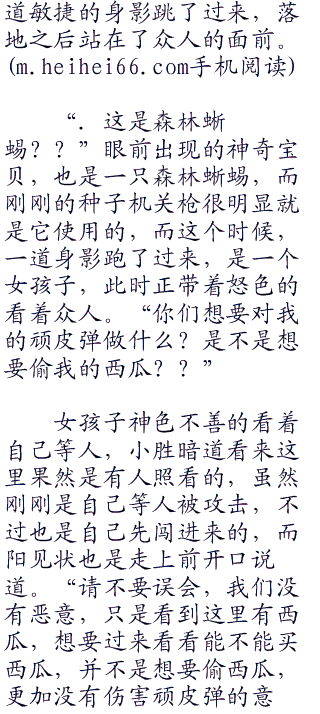 道敏捷的身影跳了过来，落
地之后站在了众人的面前。
(m.heihei66.com手机阅读)
“．这是森林蜥
蜴？？”眼前出现的神奇宝
贝，也是一只森林蜥蜴，而
刚刚的种子机关枪很明显就
是它使用的，而这个时候，
一道身影跑了过来，是一个
女孩子，此时正带着怒色的
看着众人。“你们想要对我
的顽皮弹做什么？是不是想
要偷我的西瓜？？”
女孩子神色不善的看着
自己等人，小胜暗道看来这
里果然是有人照看的，虽然
刚刚是自己等人被攻击，不
过也是自己先闯进来的，而
阳见状也是走上前开口说
道。“请不要误会，我们没
有恶意，只是看到这里有西
瓜，想要过来看看能不能买
西瓜，并不是想要偷西瓜，
更加没有伤害顽皮弹的意